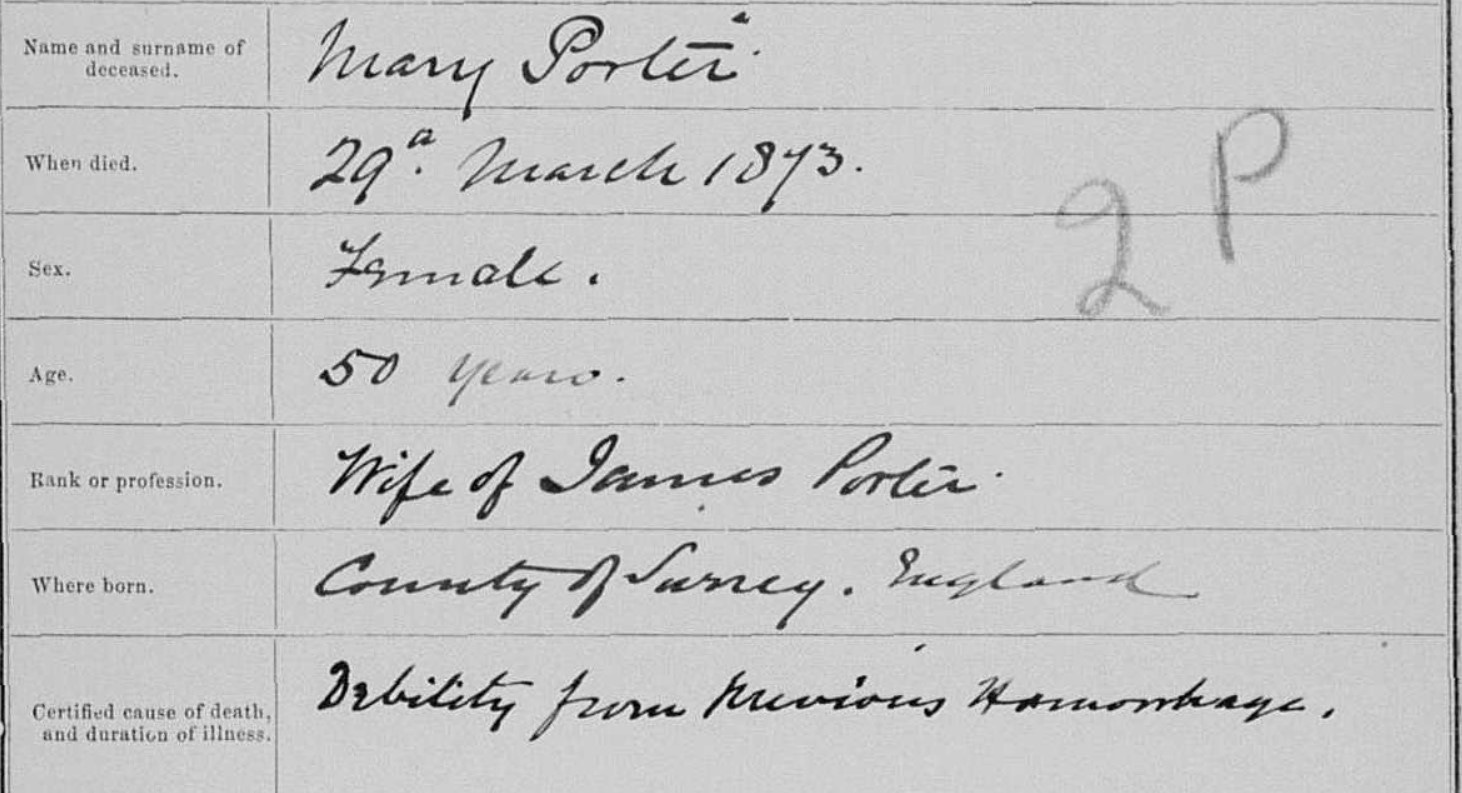 Name and surname of deceased. Mary Porter.
When died. 29th. March 1873.
2 P
Sex. Female.
Age. 50 years.
Rank or profession. Wife of James Porter.
Where born. County of Surrey. England
Certified cause of death, and duration of illness. Debility from previous Hemorrhage.